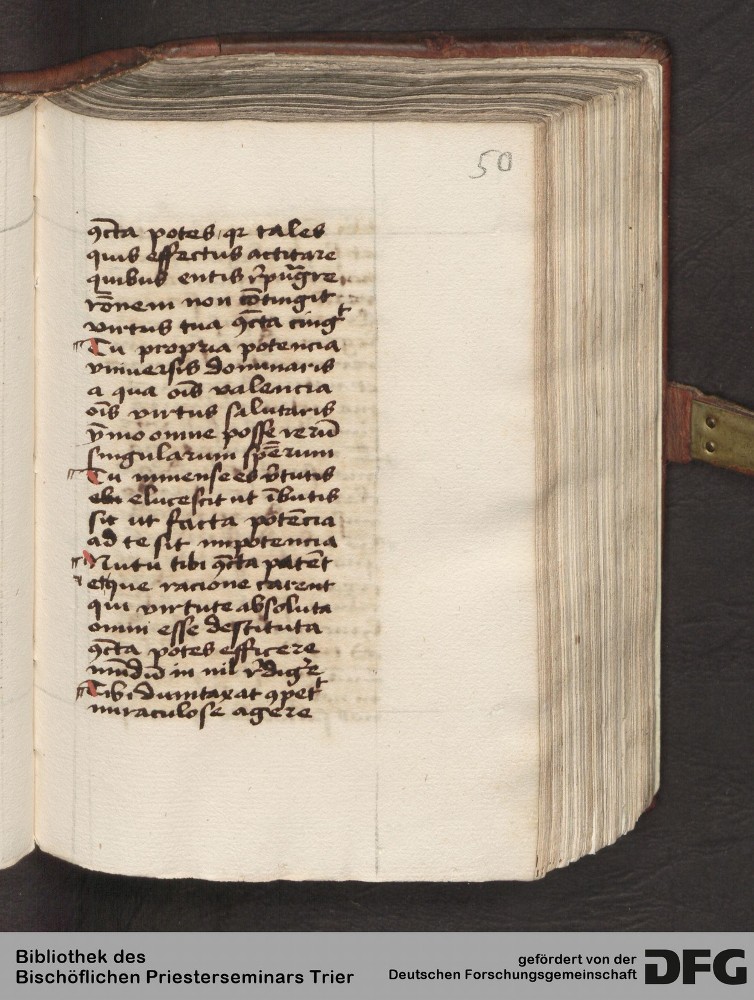 50
ꝯcta potes qr tales
quis effectus actitare
quibus entis r̄pūgre
rōnem non cōtingit
virtus tua ꝯcta cingᵗ
Tu propria potencia
vniuersis dominaris
a qua oīs valencia
oīs virtus salutaris
ymo omne posse rerū
singularum spērum
Tu immense es v̄tutis
elucescit ut ībutis
sit ut facta potēcia
ad te sit impotencia
Nutu tibi ꝯcta patēt
eque racione carent
qui virtute absoluta
omni esse destituta
ꝯcta potes efficere
mūdū in nil r̄digr̄e
Tibi dumtaxat ꝯpetᵗ
miraculose agere
Bibliothek des
Bischöflichen Priesterseminars Trier
gefördert von der
Deutschen Forschungsgemeinschaft
DFG